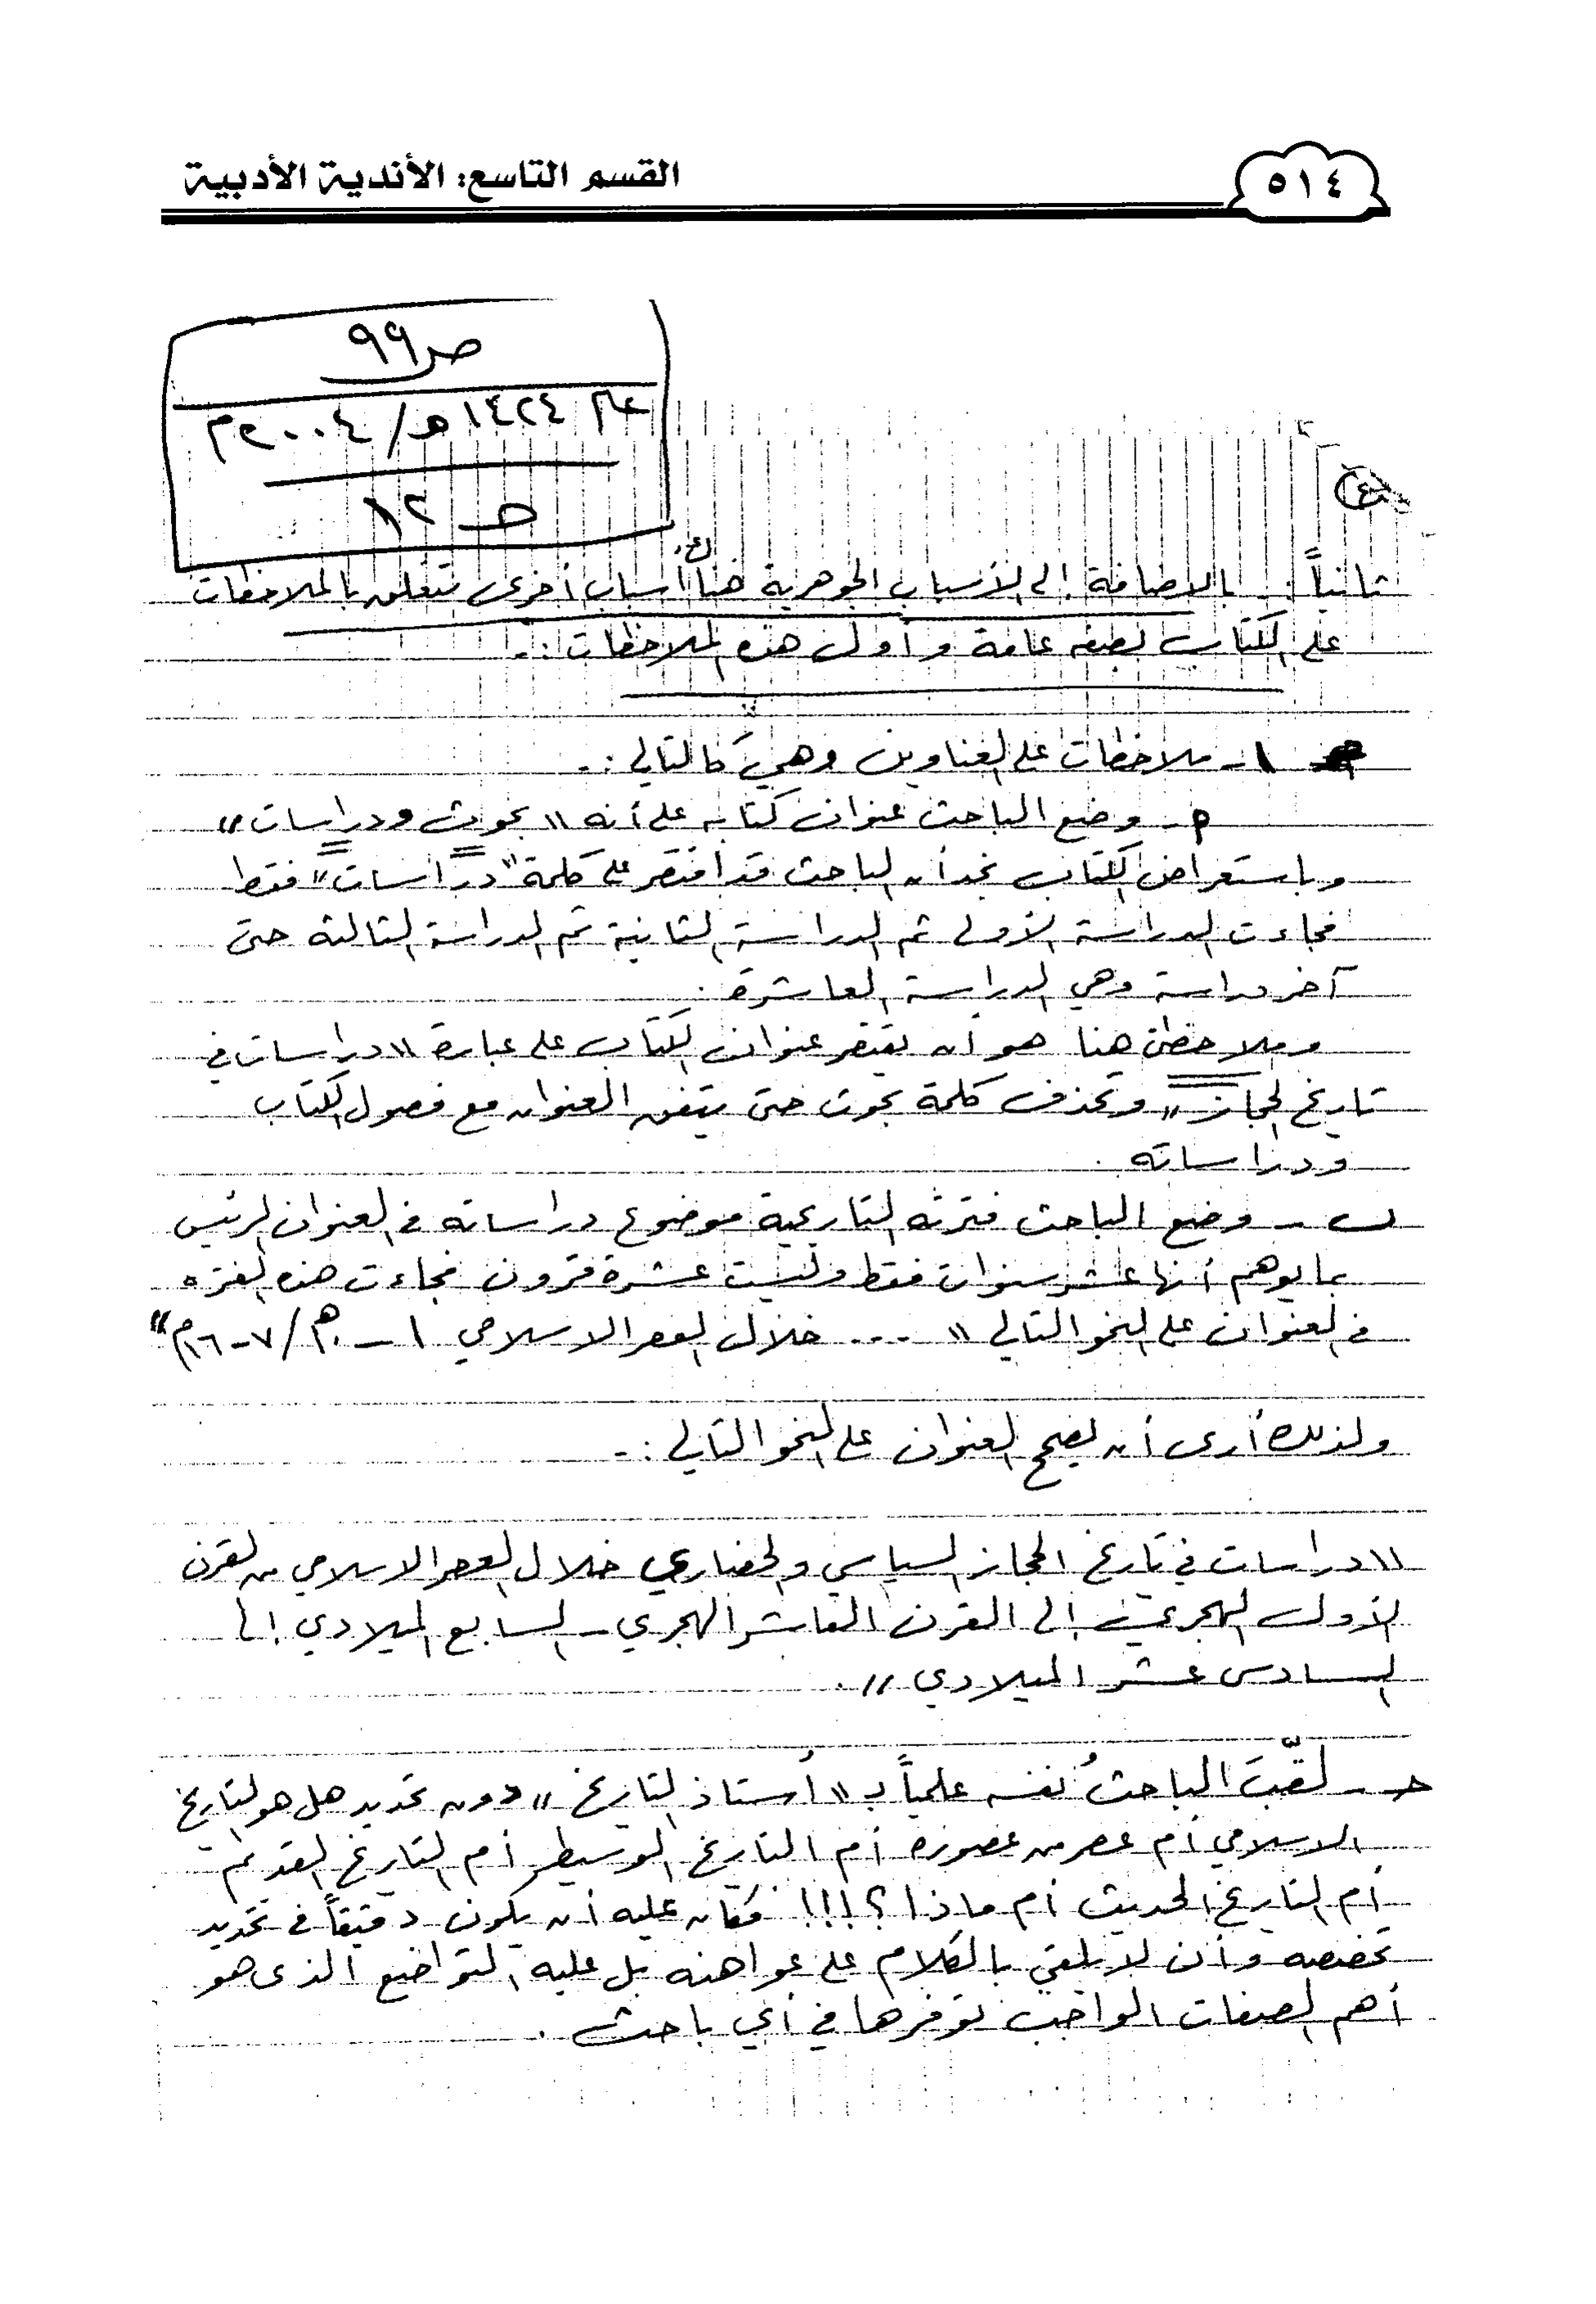 ٥١٤
القسم التاسع: الأندية الأدبية
ص ٩٩
عام ١٤٢٤ هـ / ٢٠٠٤م
ص ١٢
(٤)
ثانياً :. بالإضافة إلى الأسباب الجوهرية هناك أسباب أخرى تتعلق بالملاحظات
على الكتاب بصفه عامة وأول هذه الملاحظات :-
١- ملاحظات على العناوين وهي كالتالي :-
أ - وضع الباحث عنوان كتابه على أنه " بحوث ودراسات "
وباستعراض الكتاب نجد أن الباحث قد اقتصر على كلمة " دراسات " فقط
فجاءت الدراسة الأولى ثم الدراسة الثانية ثم الدراسة الثالثة حتى
آخر دراسة وهي الدراسة العاشرة .
وملاحظتي هنا هو أن يقتصر عنوان الكتاب على عبارة " دراسات في
تاريخ الحجاز " وتحذف كلمة بحوث حتى يتفق العنوان مع فصول الكتاب
ودراساته .
ب - وضع الباحث فترته التاريخية موضوع دراساته في العنوان الرئيس
بما يوهم أنها عشر سنوات فقط وليست عشرة قرون فجاءت هذه الفتره
في العنوان على النحو التالي " .... خلال العصر الاسلامي ١ - ١٠هـ / ٧ - ١٦م "
ولذلك أرى أن يصحح العنوان على النحو التالي :-
" دراسات في تاريخ الحجاز السياسي والحضاري خلال العصر الاسلامي من القرن
الأول الهجري إلى القرن العاشر الهجري - السابع الميلادي إلى
السادس عشر الميلادي " .
جـ - لقّبَ الباحثُ نفسه علمياً بـ " أستاذ التاريخ " دون تحديد هل هو التاريخ
الاسلامي أم عصر من عصوره أم التاريخ الوسيط أم التاريخ القديم
أم التاريخ الحديث أم ماذا ؟!!! فكان عليه أن يكون دقيقاً في تحديد
تخصصه وأن لا يلقي بالكلام على عواهنه بل عليه التواضع الذى هو
أهم الصفات الواجب توفرها في أي باحث .